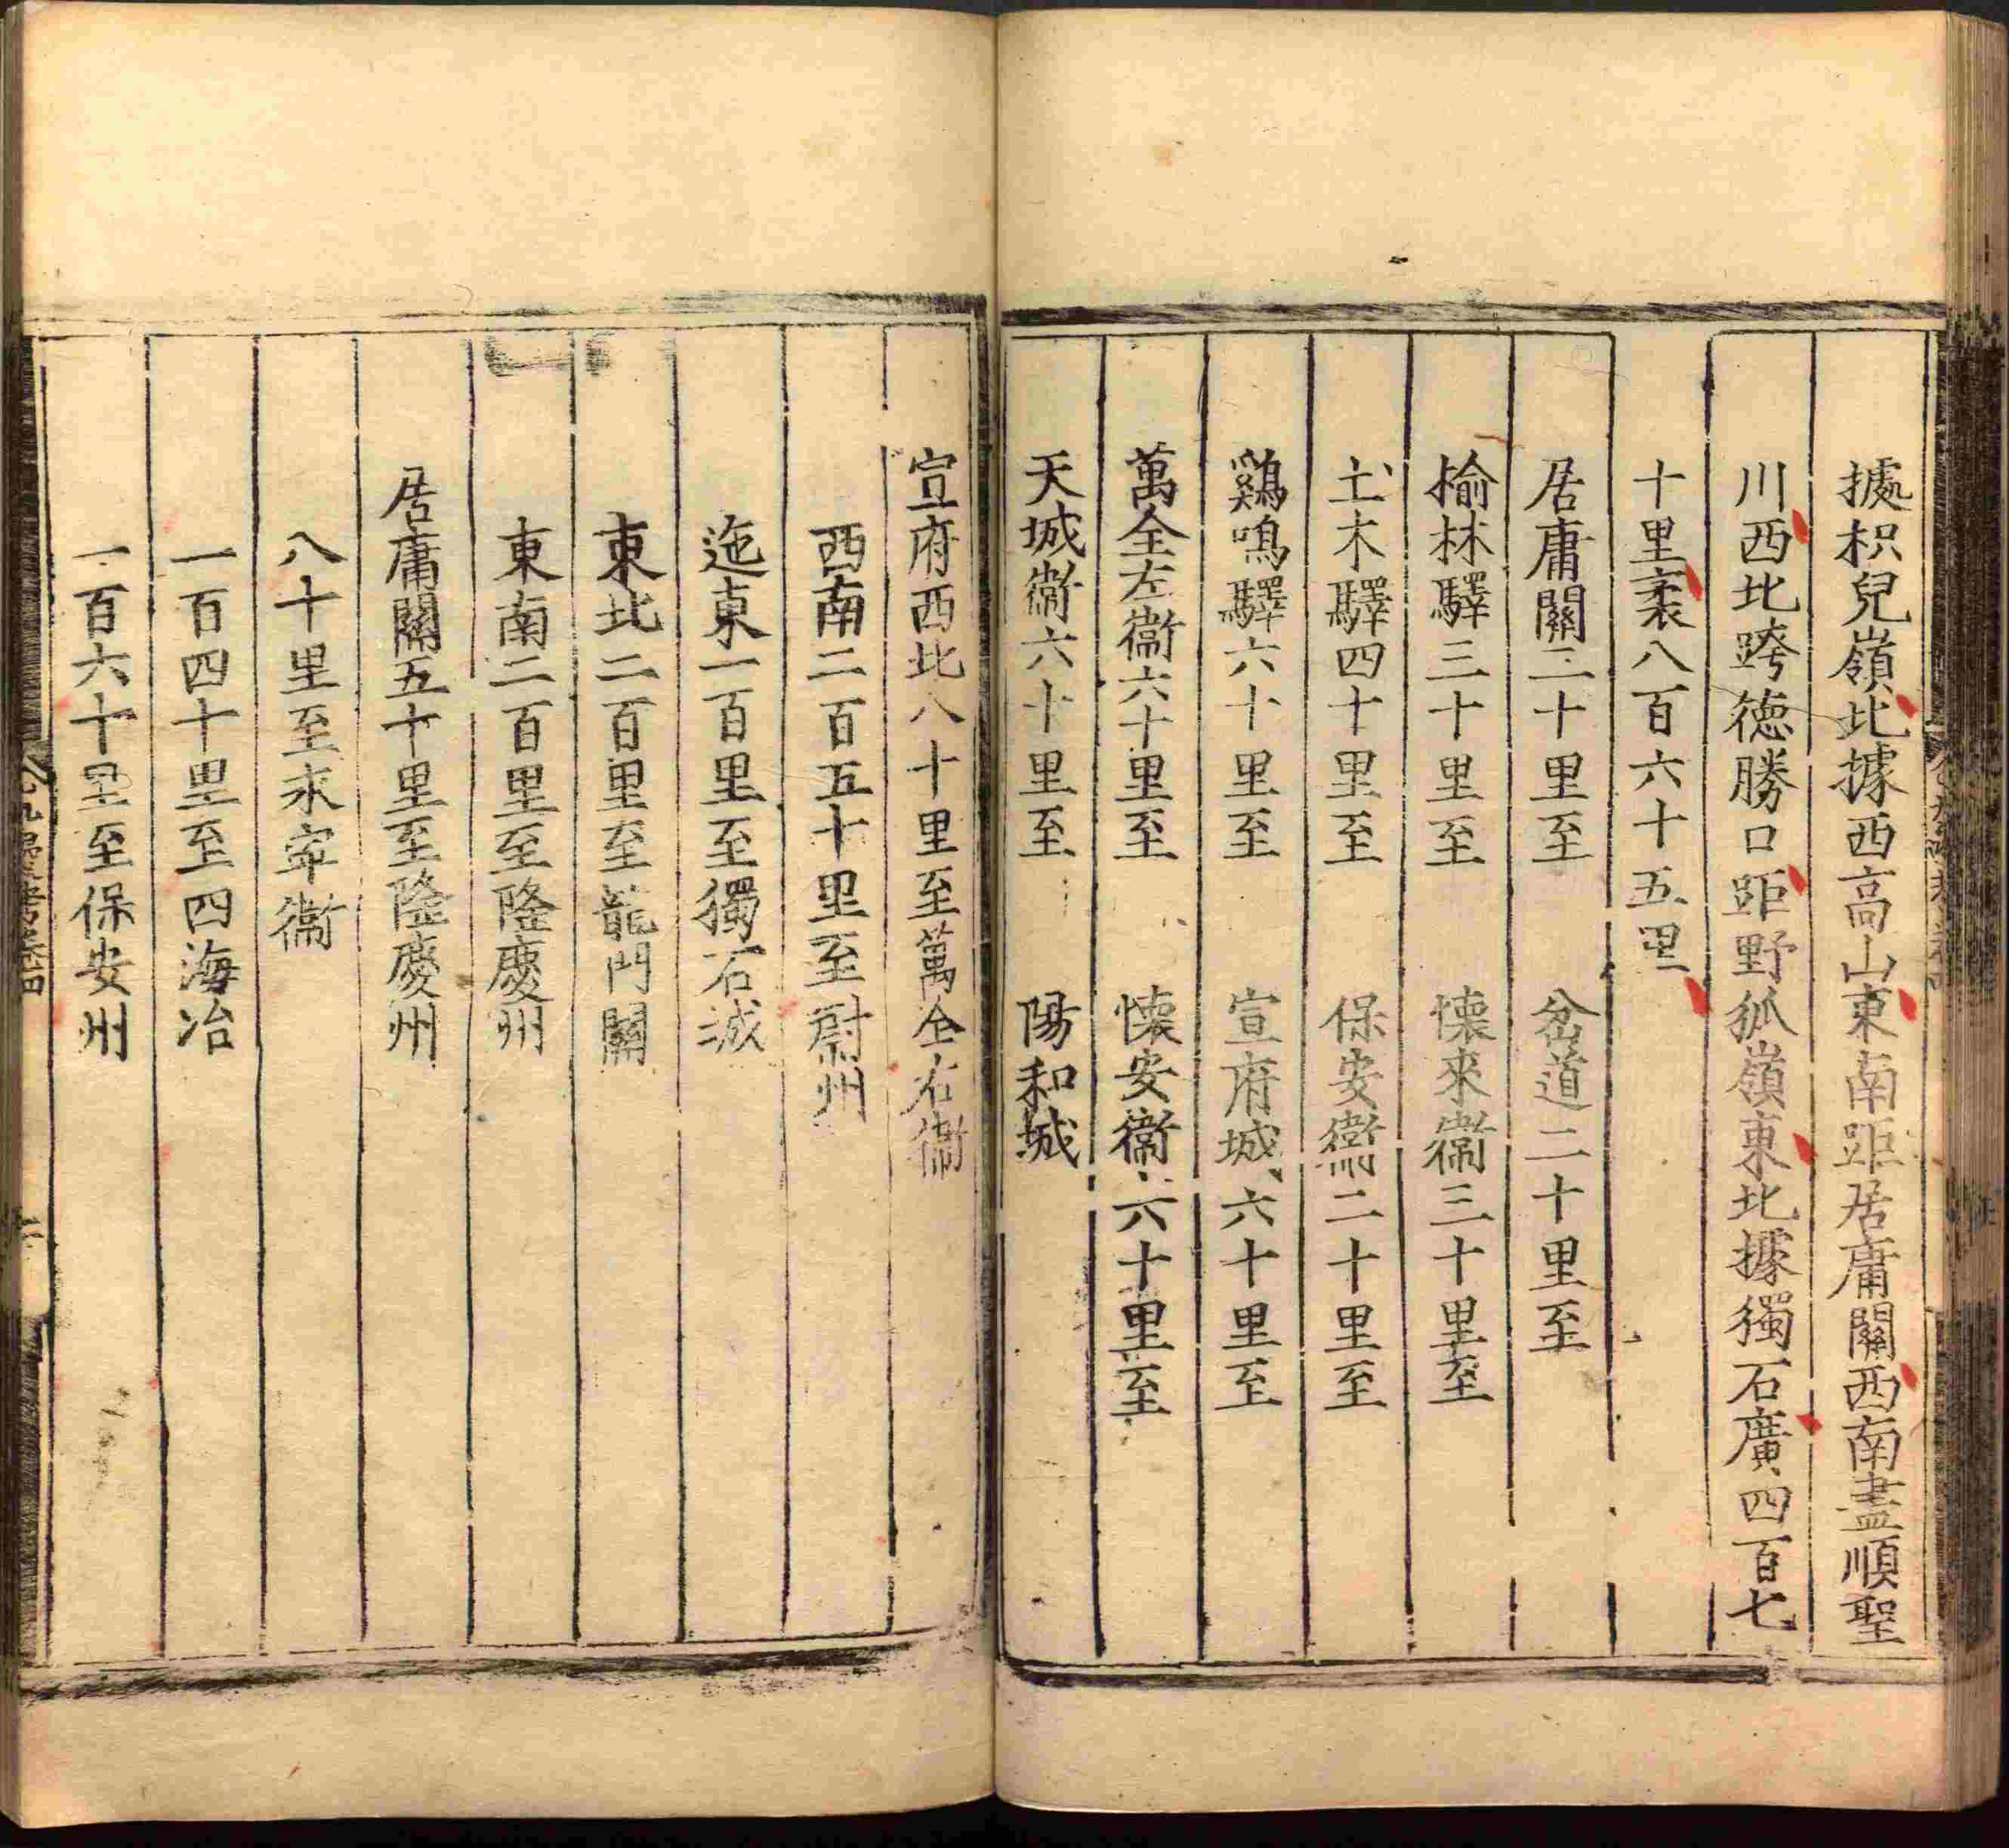 據枳兒嶺北據西高山東南距居庸關西南盡順聖
川西北跨德勝口距野狐嶺東北據獨石廣四百七
十里袤八百六十五里
居庸關二十里至　岔道二十里至
榆林驛三十里至　懷來衞三十里至
土木驛四十里至　保安衞二十里至
鷄鳴驛六十里至　宣府城六十里至
萬全左衞六十里至　懷安衞六十里至
天城衞六十里至　陽和城
宣府西北八十里至萬全右衞
西南二百五十里至蔚州
迤東一百里至獨石城
東北二百里至龍門關
東南二百里至隆慶州
居庸關五十里至隆慶州
八十里至永寧衞
一百四十里至四海冶
一百六十里至保安州